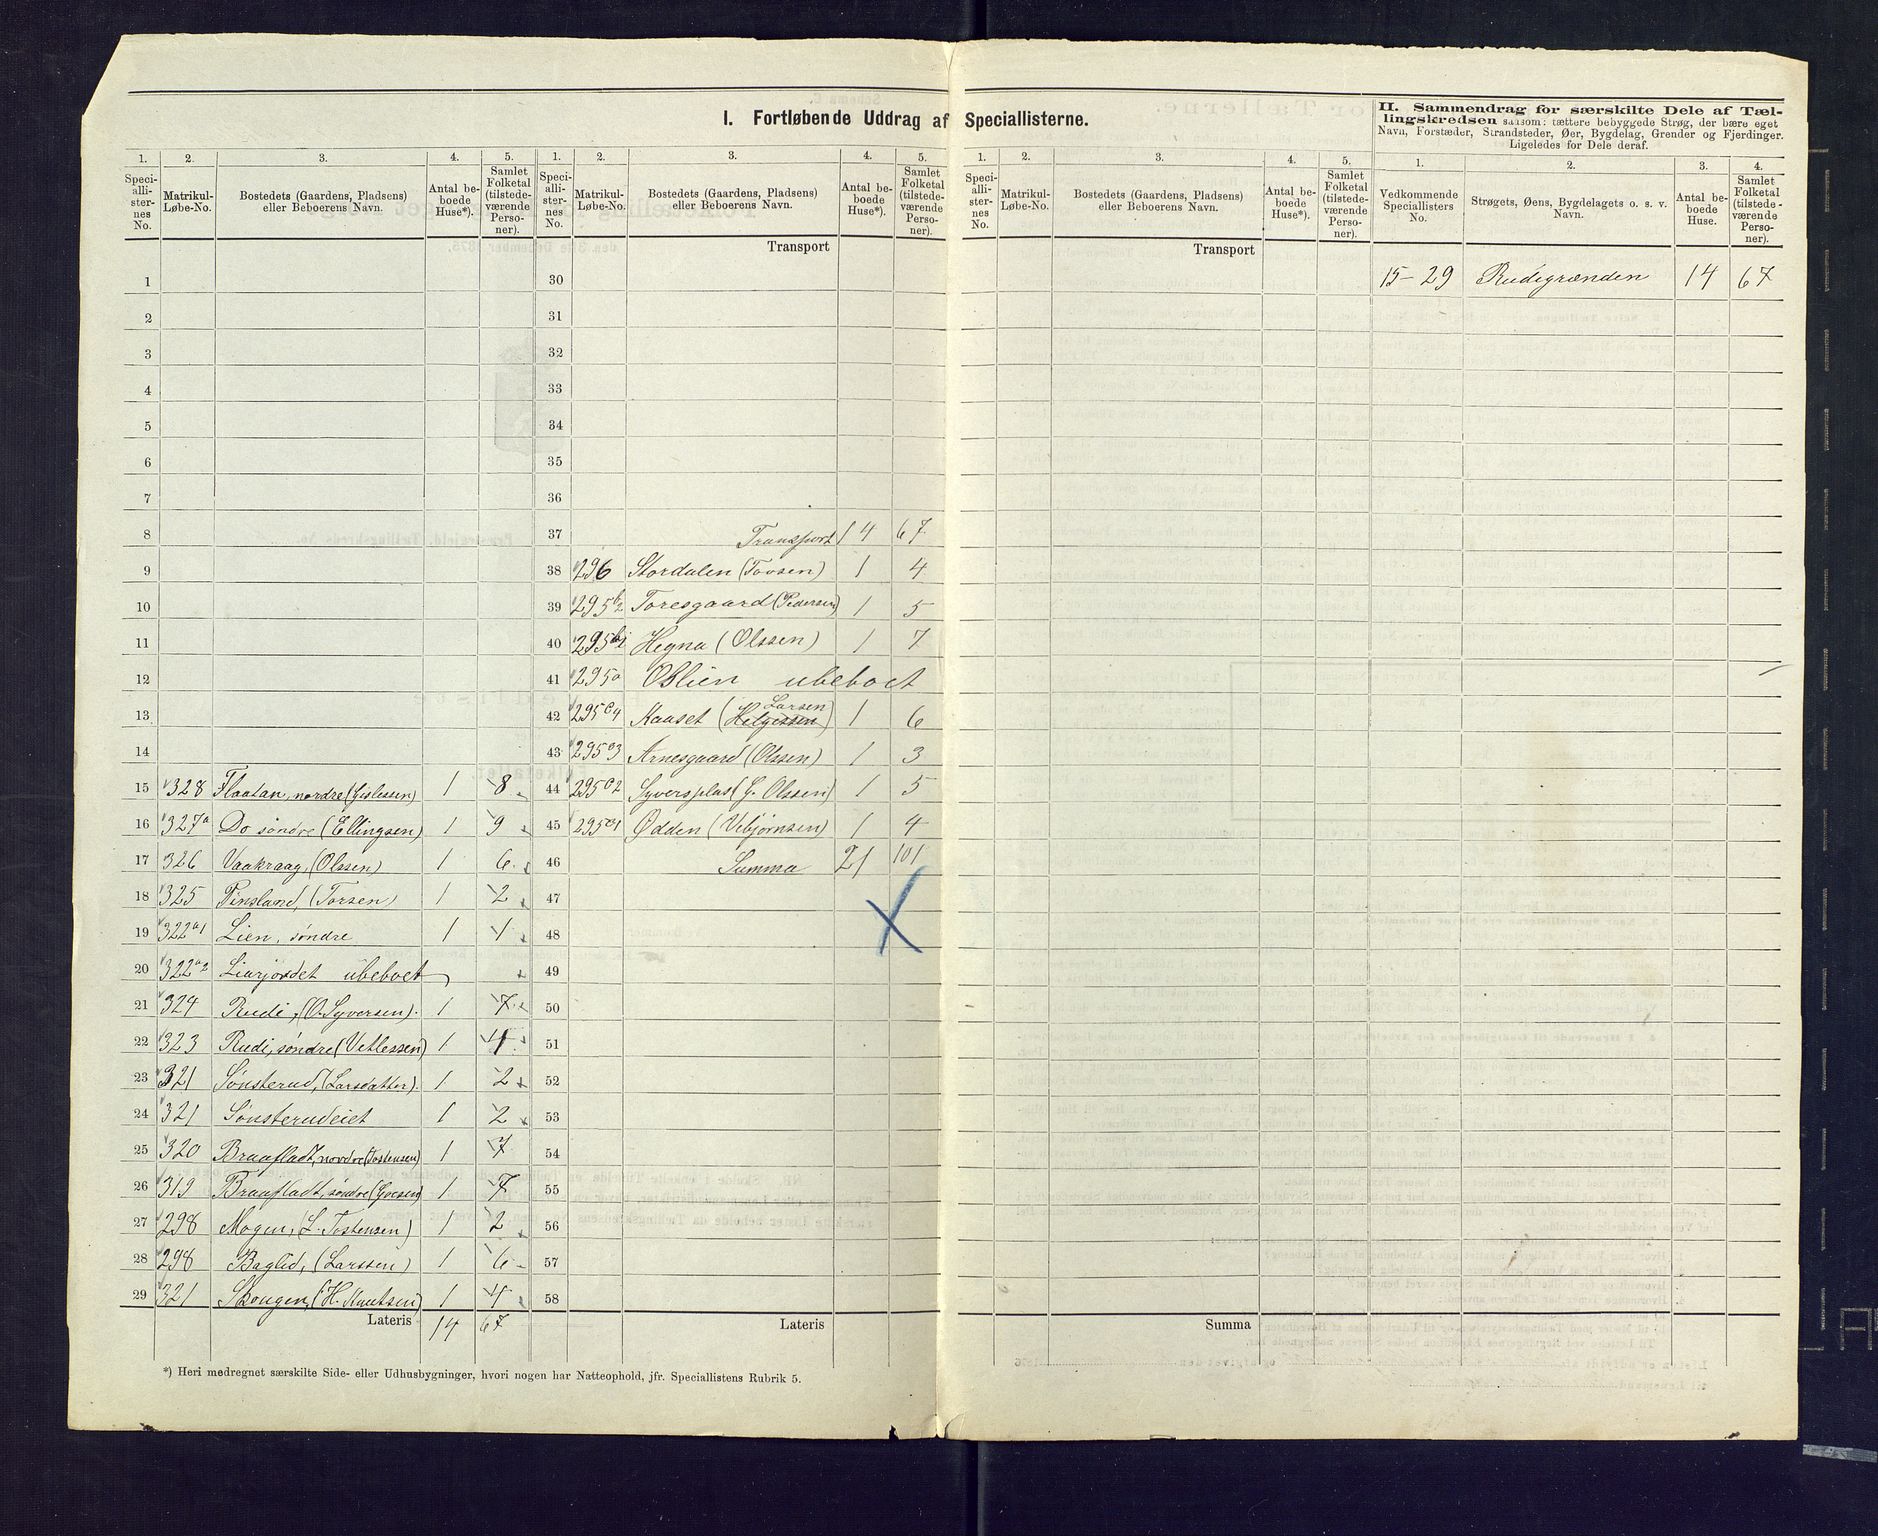 I. Fortløbende Uddrag af Speciallisterne.
II. Sammendrag for særskilte Dele af Tællingskredsen saasom: tættere bebyggede Strøg, der bære eget
Navn, Forstæder, Strandsteder, Øer, Bygdelag, Grender og Fjerdinger.
Ligeledes for Dele deraf.
1. 2. 3. 4. 5. 1. 2. 3. 4. 5. 1. 2. 3. 4. 5. 1. 2. 3. 4.
Speciallisternes No. Matrikul-Løbe-No. Bostedets (Gaardens, Pladsens) eller Beboerens Navn. Antal beboede Huse*). Samlet Folketal (tilstedeværende Personer).
Speciallisternes No. Matrikul-Løbe-No. Bostedets (Gaardens, Pladsens) eller Beboerens Navn. Antal beboede Huse*). Samlet Folketal (tilstedeværende Personer).
Speciallisternes No. Matrikul-Løbe-No. Bostedets (Gaardens, Pladsens) eller Beboerens Navn. Antal beboede Huse*). Samlet Folketal (tilstedeværende Personer).
Vedkommende Speciallisters No. Strøgets, Øens, Bygdelagets o. s. v. Navn. Antal beboede Huse. Samlet Folketal (tilstedeværende Personer).
1
2
3
4
5
6
7
8
9
10
11
12
13
14
15 328 Flaatan, nordre (Gislessen) 1 8
16 327a Do søndre (Ellingsen) 1 9
17 326 Vaakraag, (Olssen) 1 6
18 325 Pinsland, (Torsen) 1 2
19 322a1 Lien, søndre 1 1
20 322a2 Liarjordet ubeboet
21 324 Rudi, (O. Syversen). 1 7
22 323 Rudi, søndre (Vetlessen) 1 4
23 321 Sønsterud, (Larsdatter). 1 2
24 321 Sønsterudeiet 1 2
25 320 Braafladt, nordre (Tostensen) 1 7
26 319 Braafladt, søndre 1 7
27 298 Mogen, (L. Tostensen) 1 2
28 298 Baglid, (Larssen) 1 6
29 321 Skougen, (H. Knutsen) 1 4
Lateris 14 67
Transport
30
31
32
33
34
35
36
37 Transport 14 67
38 296 Stordalen (Tovsen) 1 4
39 295b2 Toresgaard (Pedersen) 1 5
40 295b1 Hegna (Olssen) 1 7
41 295a Oslien ubeboet
Larsen
42 295c4 Kaaset (Helgessen) 1 6
43 295c3 Arnesgaard (Olssen) 1 3
44 295c2 Syversplas (G. Olssen) 1 5
45 295c1 Ødden (Vebjørnsen) 1 4
46 Summa 21 101
47
48
49
50
51
52
53
54
55
56
57
58
Lateris
Transport
Summa
15-29 Rudigrænden 14 67
*) Heri medregnet særskilte Side- eller Udhusbygninger, hvori nogen har Natteophold, jfr. Speciallistens Rubrik 5.